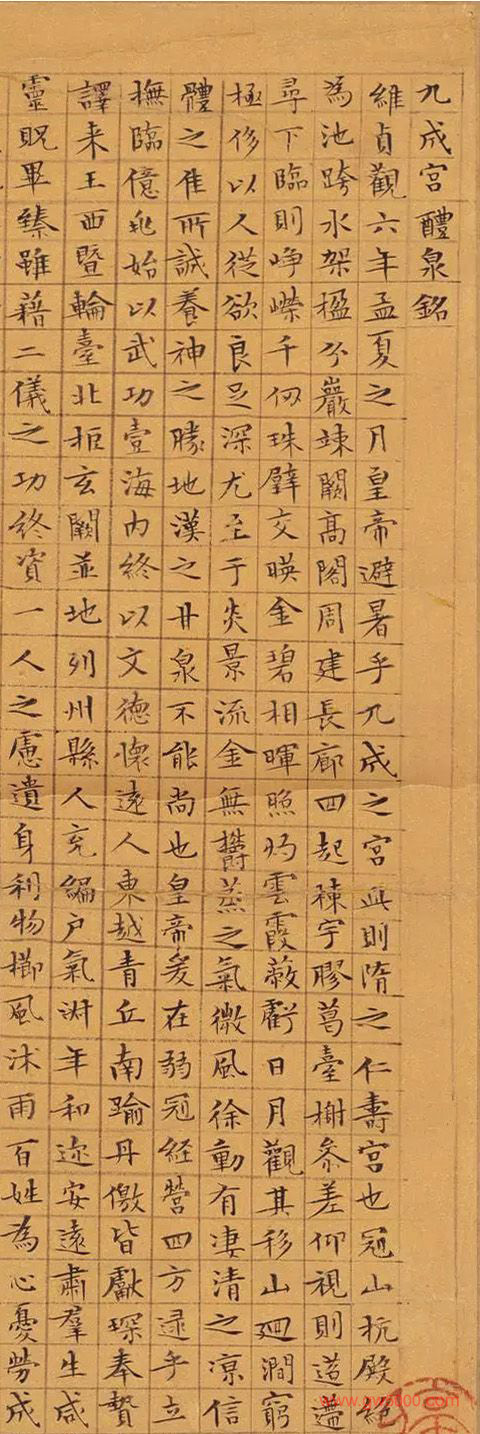 九成宫醴泉銘
維貞觀六年孟夏之月皇帝避暑乎九成之宫此則隋之仁壽宫也冠山抗殿絕
為池跨水架楹分巖竦闕高閣周建長廊四起棟宇膠葛臺榭参差仰視則迢遰
尋下臨則崢嶸千仞珠璧交暎金碧相暉照灼雲霞蔽虧日月觀其移山迴澗窮
極侈以人從欲良足深尤至于炎景流金無欝蒸之氣微風徐動有凄清之涼信
體之佳所誠養神之勝地漢之甘泉不能尚也皇帝爰在弱冠經營四方逮乎立
撫臨億兆始以武功壹海内終以文德懷遠人東越青丘南踰丹儌皆獻琛奉贄
譯来王西暨輪臺北拒玄闕並地列州縣人充編户氣淑年和迩安遠肅羣生咸
靈貺畢臻雖藉二儀之功終資一人之慮遺身利物櫛風沐雨百姓為心憂勞成